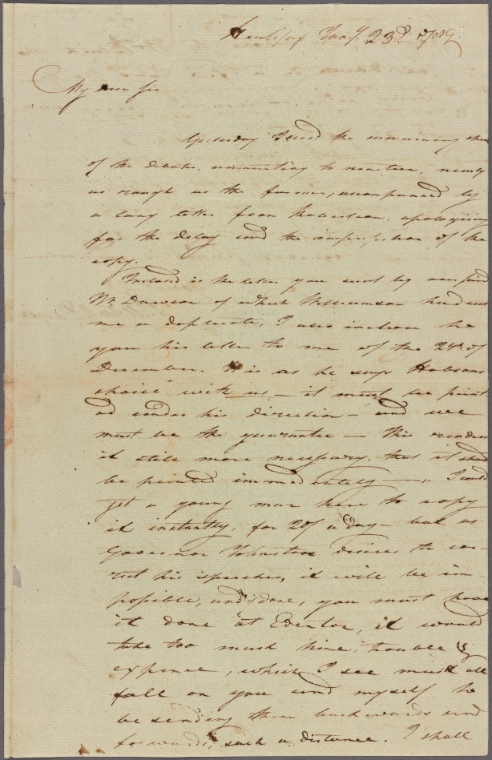 Jany. 23d. 1789.
My dear Sir
Yesterday I recd the remaining sheets
of the Debates, amounting to nineteen, nearly
as rough as the former, accompanied by
a long letter from Robertson, apologising
for the delay and the imperfection of the
copy.
Inclosed is the letter you sent by
Mr Dawson of which Williamson had sent
me a duplicate, I also inclose to
you his letter to me of the 24th of
December. It is as he says Hobsons
choise with us — it must be print
ed under his direction — and we
must be the guarantee — this renders
it still more necessary that it should
be printed immediately — I could
get a young man here to copy
it instantly, for 20/ a day — but as
Governor Johnston desires to cor-
rect his speeches, it will be im-
possible, and if done, you must have
it done at Edenton, it would
take too much time, trouble &
expence, which I see must all
fall on you and myself to
be sending them backwards and
forwards, such a distance. I shall